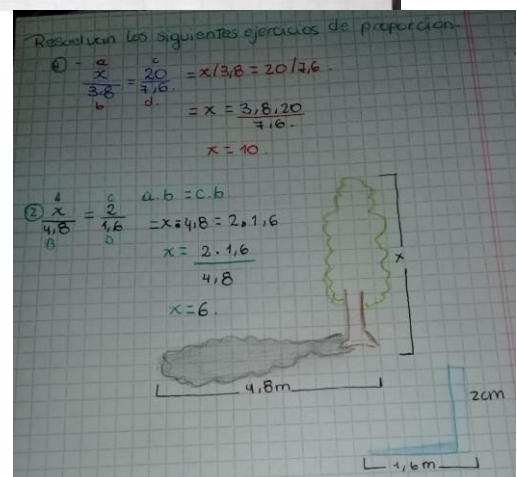 Resuelvan los siguientes ejercicios de proporción.
① - a c
x/3.8 = 20/7,6. = x/3,8 = 20/7,6.
b d.
= x = 3,8.20/7,6.
x = 10.
A C a.b = c.b
② x/4,8 = 2/1,6 = x = 4,8 = 2.1,6
B D
x = 2.1,6/4,8
x = 6.
x
4,8m
2cm
1,6m